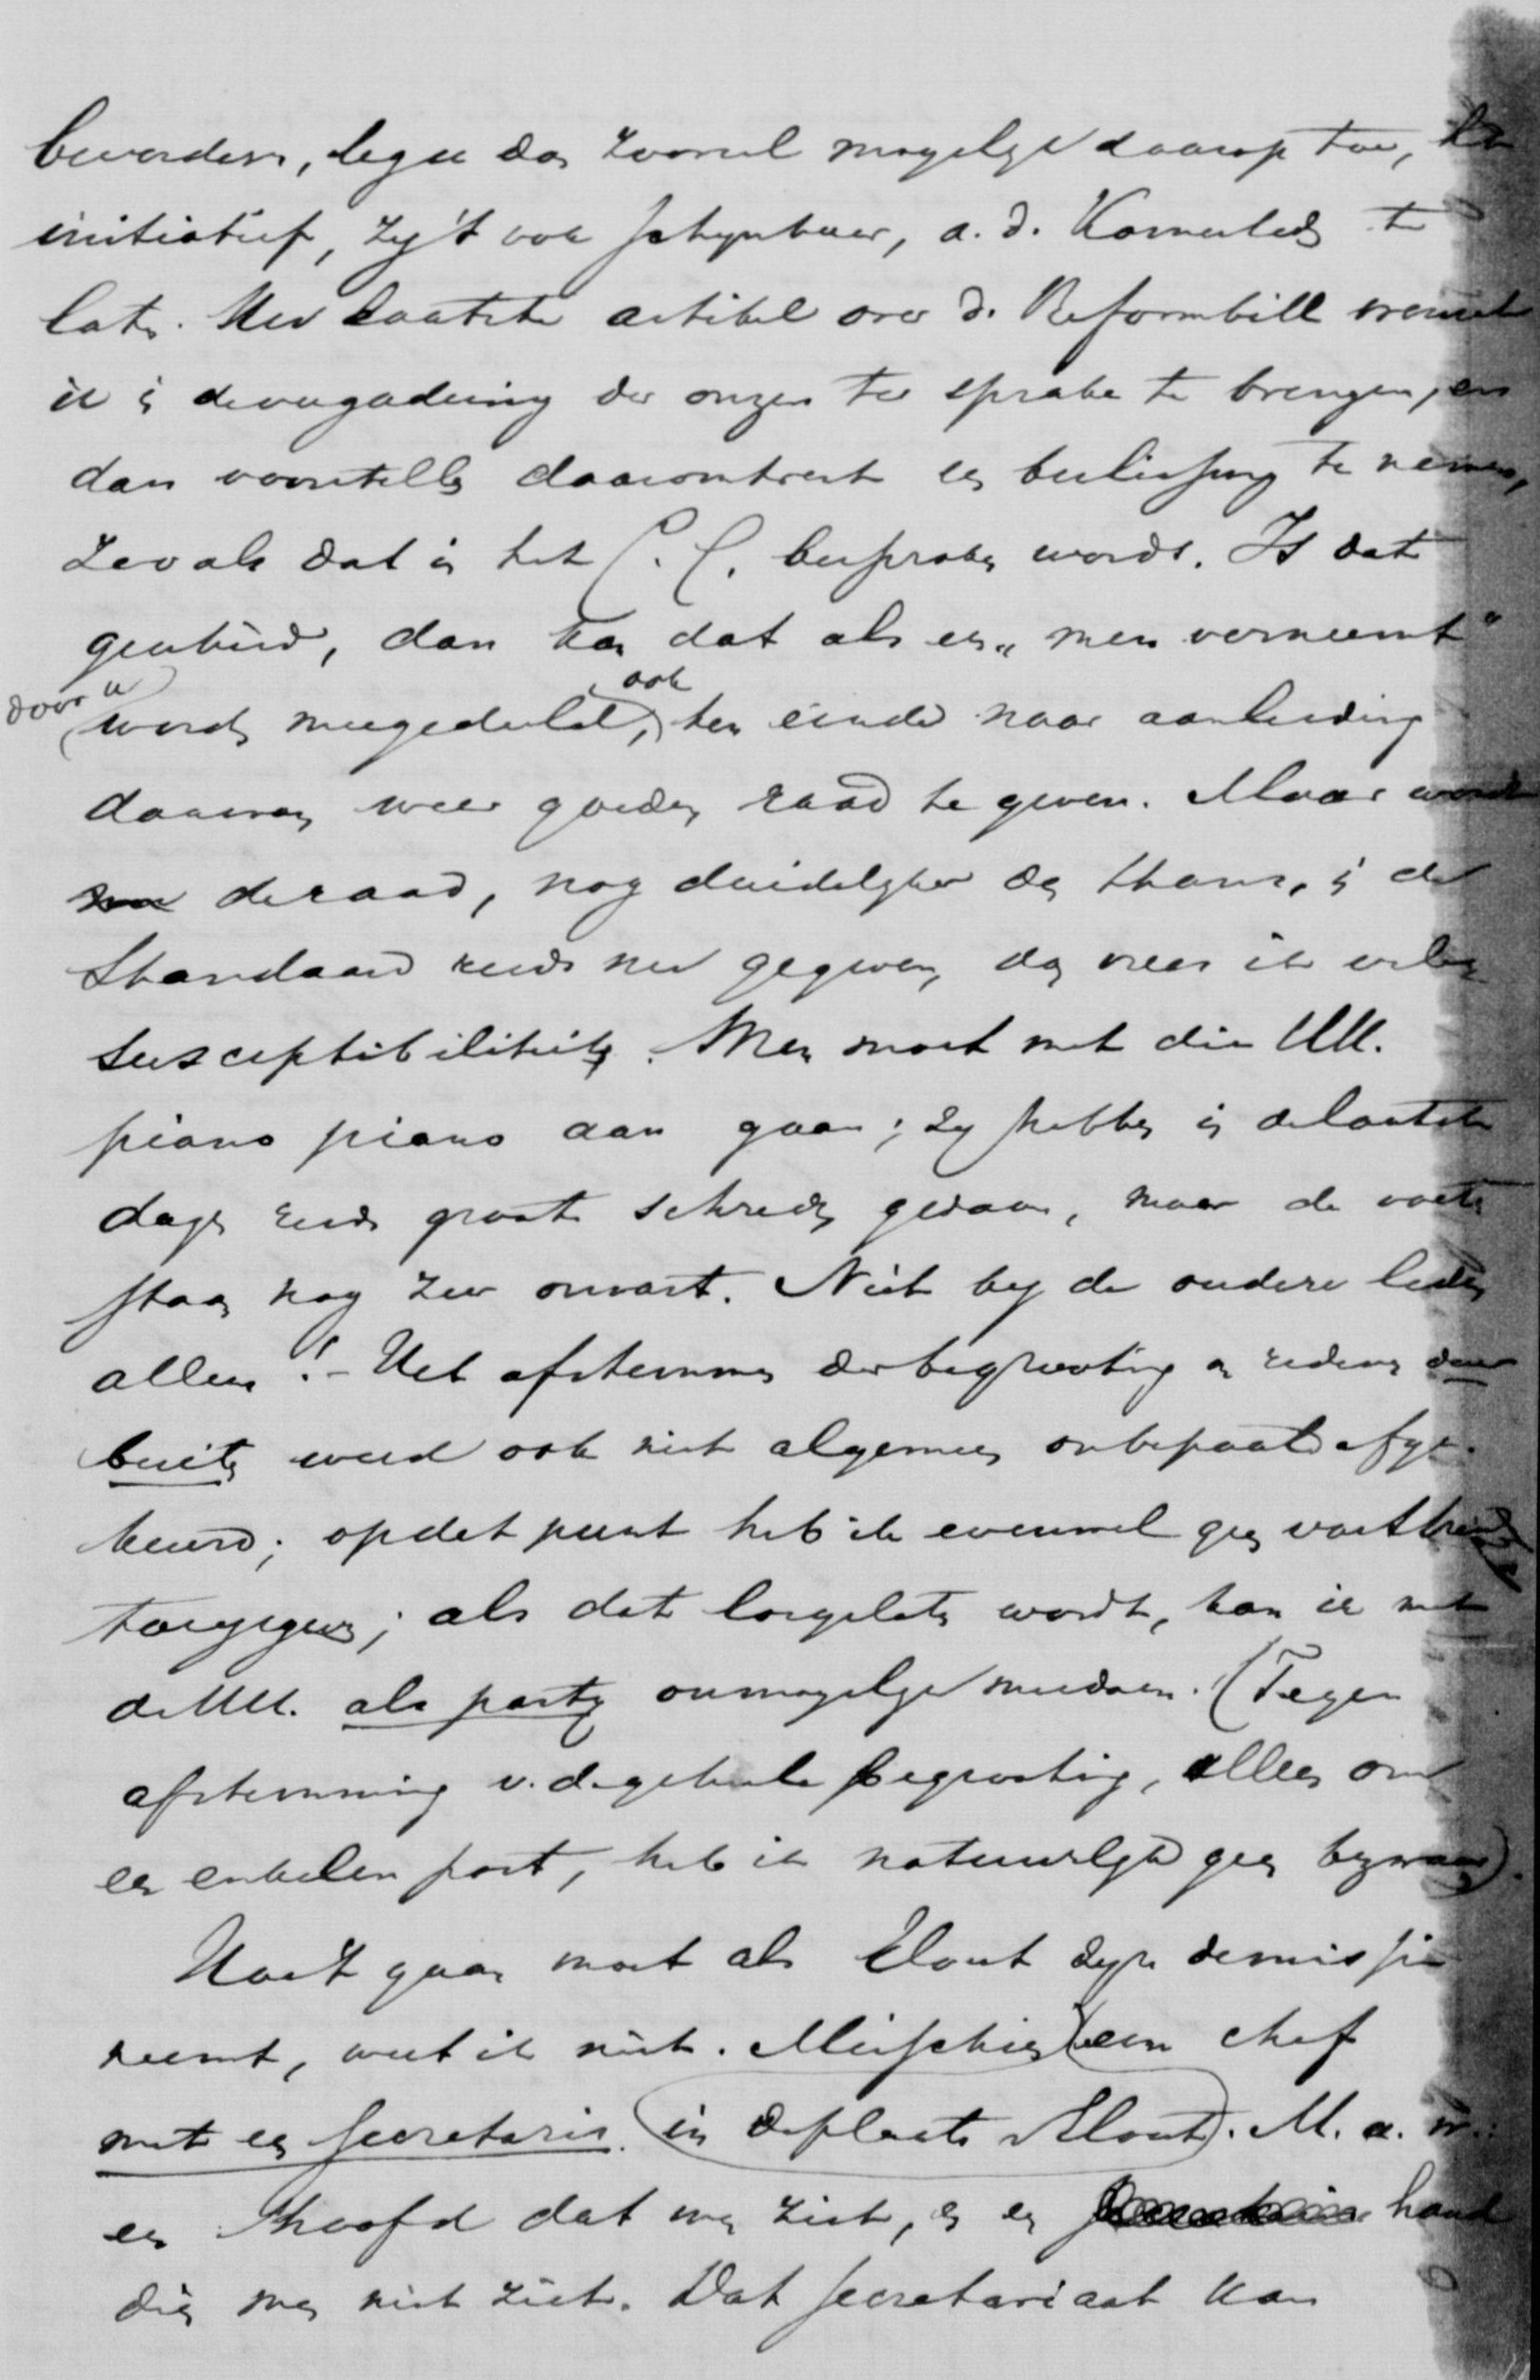 bevorderen, leg er dan zooveel mogelijk daarop toe, het
initiatief, zij 't ook schijnbaar, a. d. Kamerleden te
laten. Uw laatste artikel over d. Reformbill wensch
ik in de vergadering der onzen ter sprake te brengen, en
dan voorstellen daaromtrent een beslissing te nemen,
zooals dat in het C. C. besproken wordt. Is dat
gebeurd, dan kan dat als een „men verneemt"
(door u) worden meegedeeld, ook ten einde naar aanleiding
daarvan weer goeden raad te geven. Maar wordt
de raad, nog duidelijker dan thans, in de
Standaard reeds nu gegeven, dan vrees ik voor
susceptibiliteiten. Men moet met die UU.
piano piano aan gaan; zij hebben in de laatste
dagen reeds groote schreden gedaan, maar de voeten
staan nog zeer onvast. Niet bij de oudere leden
alleen! - Het afstemmen der begrooting om redenen daar
buiten werd ook niet algemeen onbepaald afge-
keurd; op dat punt heb ik evenwel geen voetbreed
toegegeven; als dat losgelaten wordt, kan ik met
de UU. als partij onmogelijk meedoen. (Tegen
afstemming v. d. geheele begrooting, alleen om
een enkelen post, heb ik natuurlijk geen bezwaar).
Hoe 't gaan moet als Elout zijn demissie
neemt, weet ik niet. Misschien een chef
met een secretaris (in de plaats v Elout). M. a. w.:
een hoofd dat men ziet, en een hand
die men niet ziet. Dat secretariaat kan